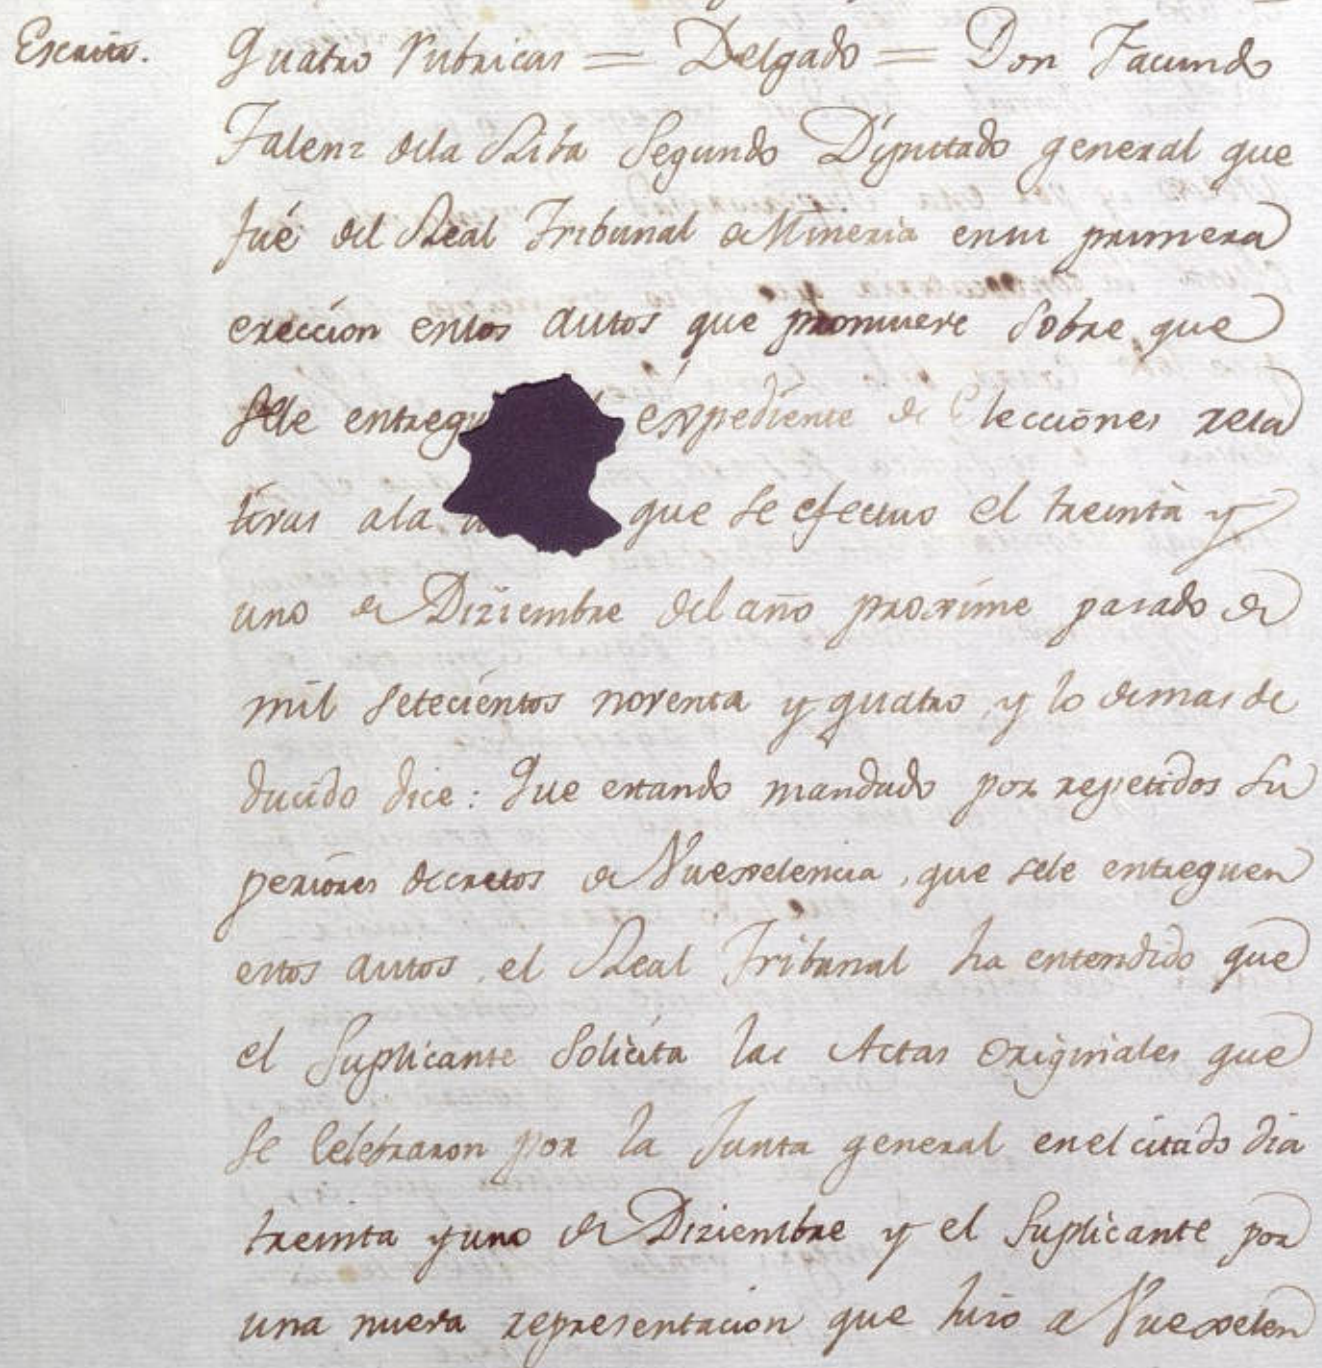 Escrito.
Quatro rubricas = Delgado = Don Facundo
Falenz dela Riba Segundo Diputado general que
fué del Real Tribunal de Mineria ensu primera
ereccion enlos autos que promueve Sobre que
sele entregu expediente de Elecciones rela
tivas ala que se efectuo el treinta y
uno de Diziembre del año proxime pasado de
mil Setecientos noventa y quatro, y lo demas de
ducido dice: Que estando mandado por repetidos Su
periores decretos de Vuexelencia, que sele entreguen
estos autos, el Real Tribunal ha entendido que
el Suplicante Solicita las Actas Originales que
se Celebraron por la Junta general enel citado dia
treinta y uno de Diziembre y el Suplicante por
una nueva representacion que hizo a Vuexelen